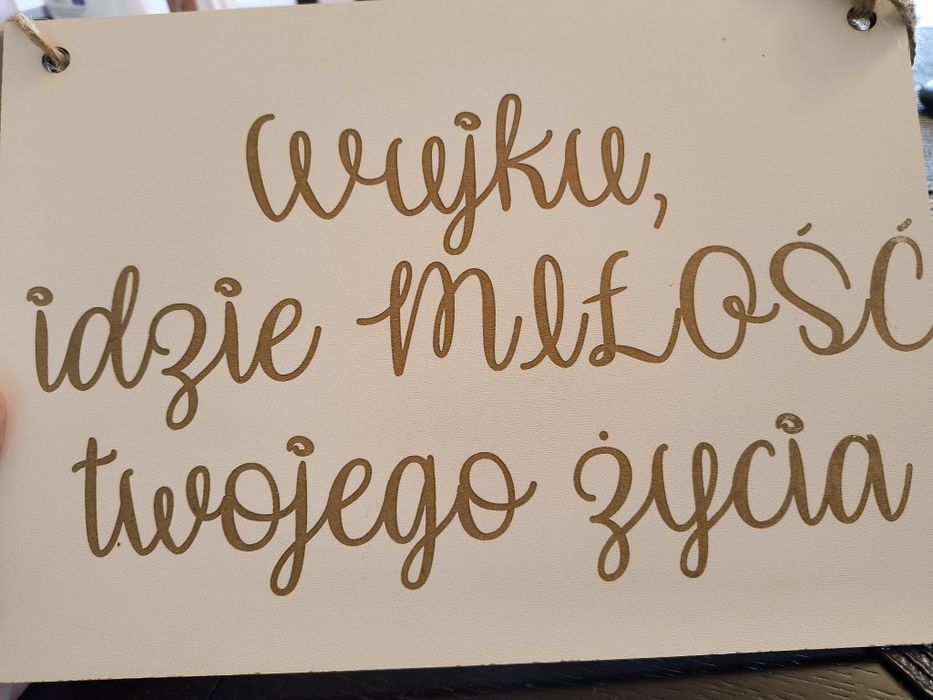 Wujku,
idzie MIŁOŚĆ
twojego życia